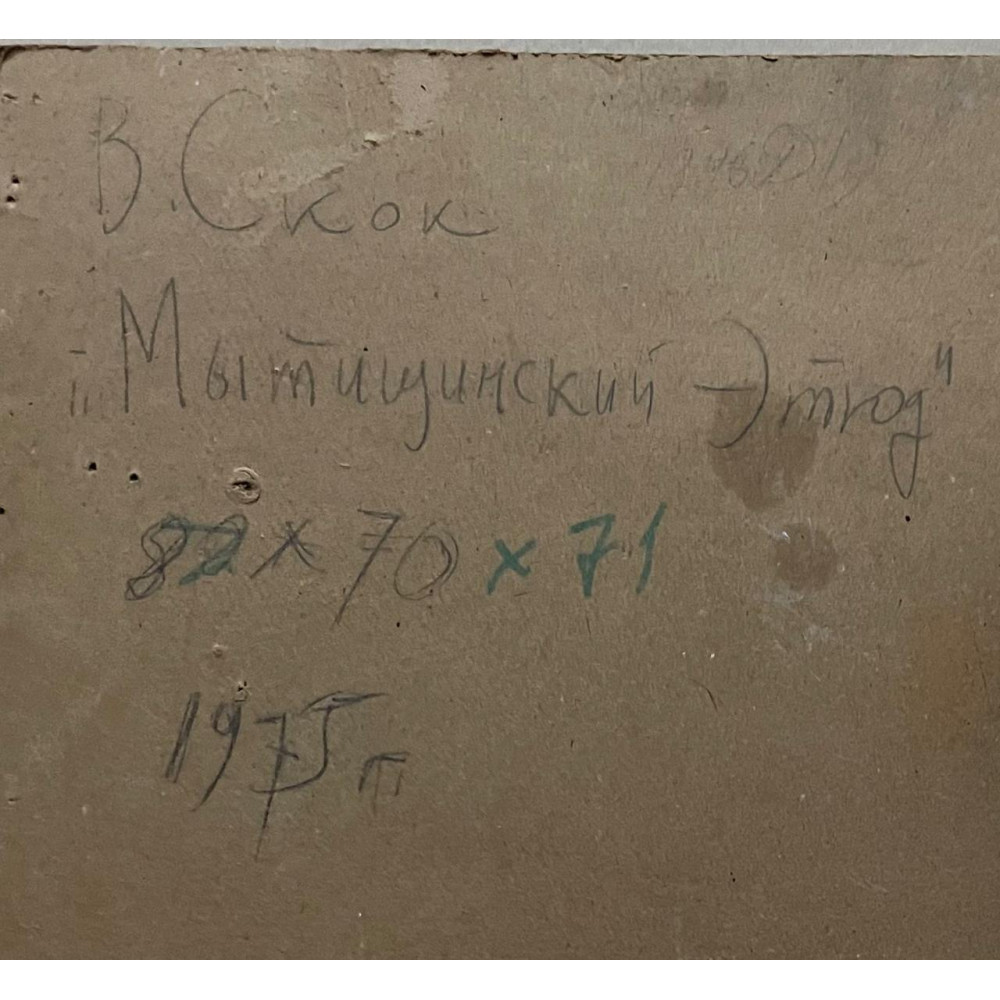 В. Скок
„Мытищинский Этюд"
82 х 70 х 71
1975 г